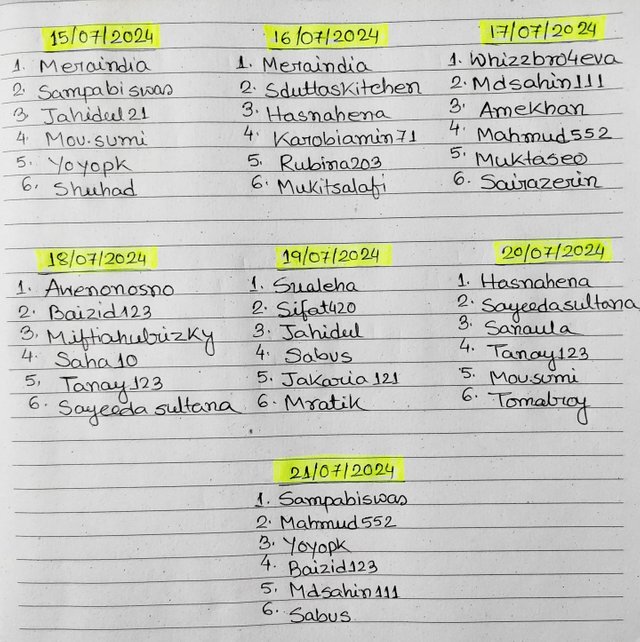 15/07/2024
1. Meraindia
2. Sampabiswas
3. Jahidul21
4. Mou.sumi
5. Yoyopk
6. Shuhad
16/07/2024
1. Meraindia
2. Sduttaskitchen
3. Hasnahena
4. Karobiamin71
5. Rubina203
6. Mukitsalafi
17/07/2024
1. Whizzbro4eva
2. Mdsahin111
3. Amekhan
4. Mahmud552
5. Muktaseo
6. Sairazerin
18/07/2024
1. Avenonosno
2. Baizid123
3. Miftiahubrizky
4. Saha10
5. Tanay123
6. Sayeedasultana
19/07/2024
1. Sualeha
2. Sifat420
3. Jahidul
4. Sabus
5. Jakaria121
6. Mratik
20/07/2024
1. Hasnahena
2. Sayeedasultana
3. Sanaula
4. Tanay123
5. Mou.sumi
6. Tomabroy
21/07/2024
1. Sampabiswas
2. Mahmud552
3. Yoyopk
4. Baizid123
5. Mdsahin111
6. Sabus